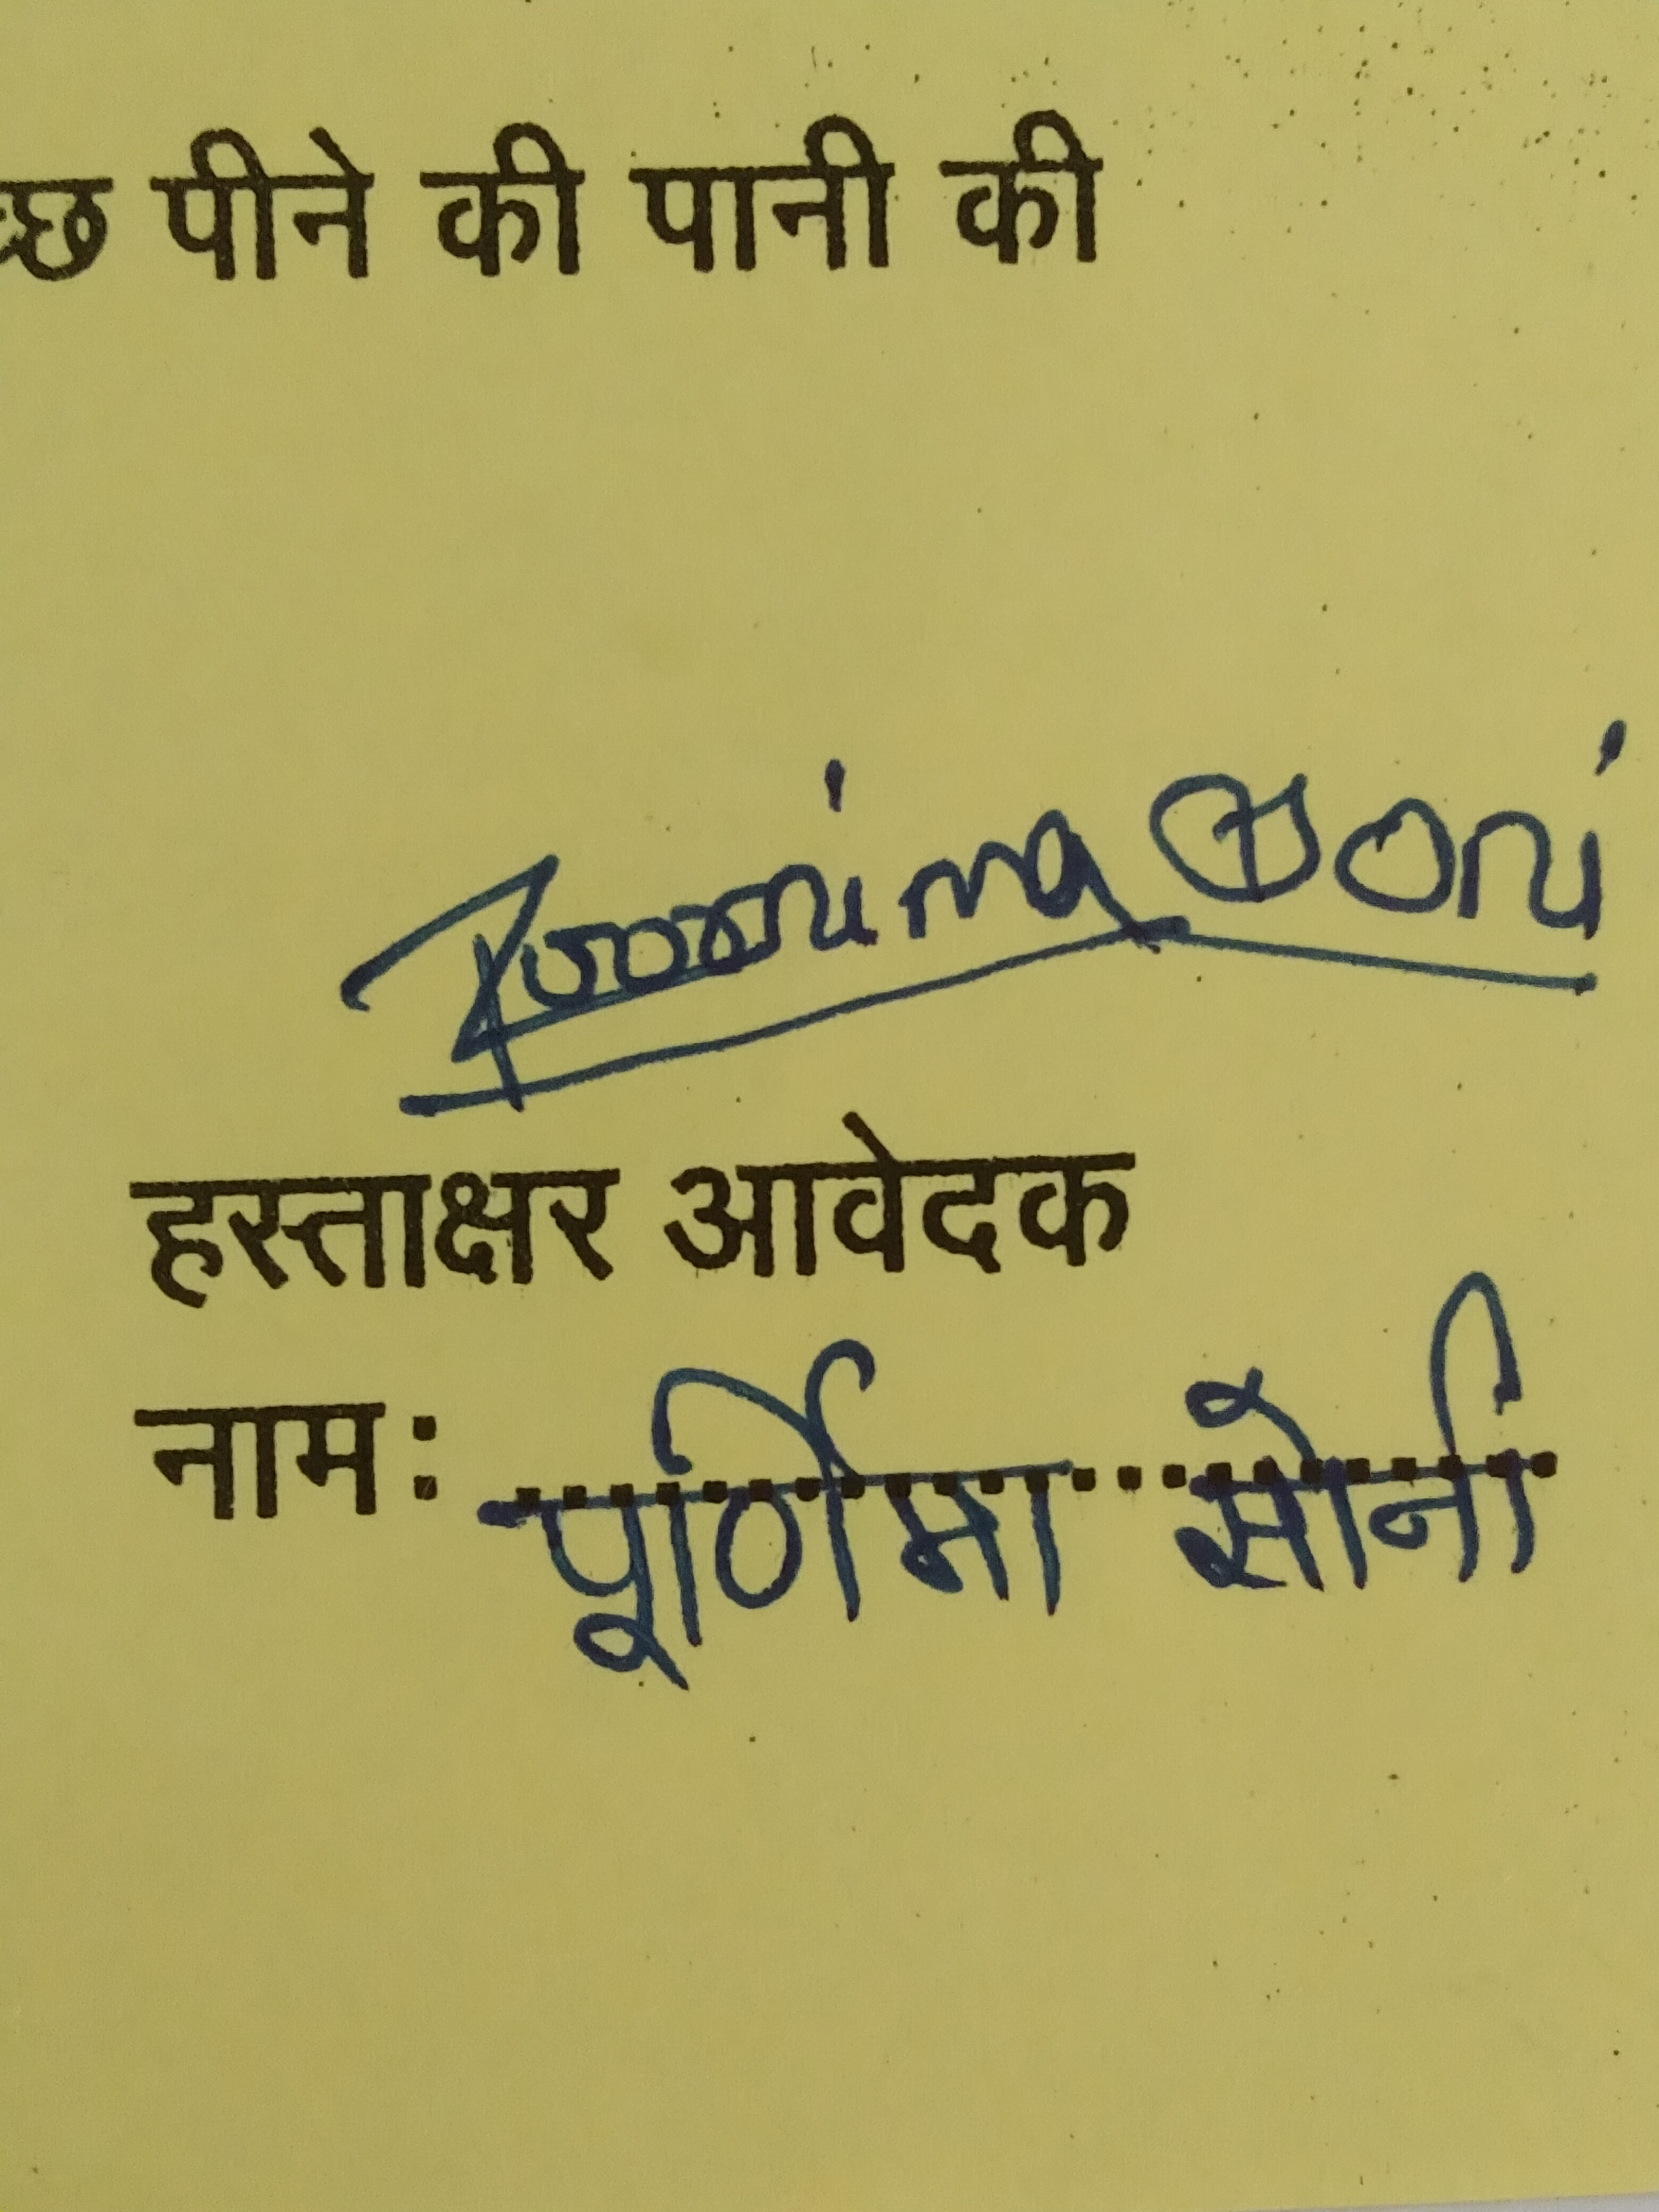 च्छ पीने की पानी की
Poornima Soni
हस्ताक्षर आवेदक
नाम: पूर्णिमा सोनी